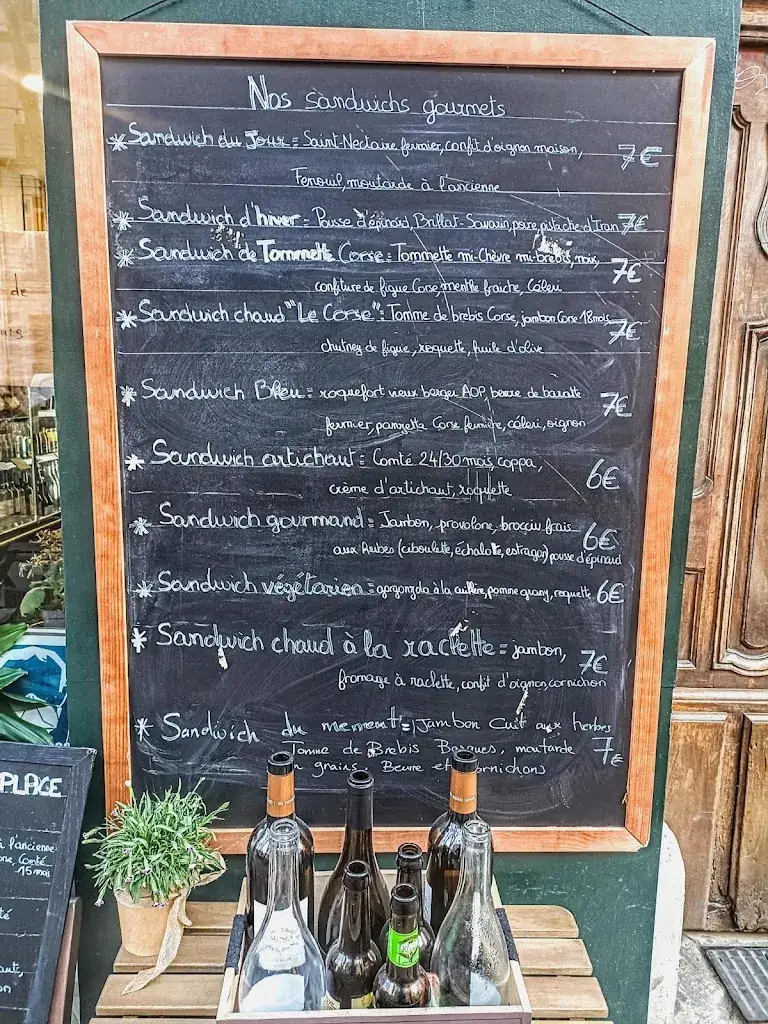 Nos sandwichs gourmets
* Sandwich du Jour = Saint-Nectaire fermier, confit d'oignon maison, 7€
Fenouil, moutarde à l'ancienne
* Sandwich d'hiver = Pousse d'épinard, Brillat-Savarin, poire, pistache d'Iran 7€
* Sandwich de Tommette Corse = Tommette mi-chèvre mi-brebis, noix, 7€
confiture de figue Corse, menthe fraiche, Céleri
* Sandwich chaud "Le Corse" = Tomme de brebis Corse, jambon Corse 18 mois 7€
chutney de figue, roquette, huile d'olive
* Sandwich Bleu = roquefort vieux berger AOP, beurre de baratte 7€
fermier, panzetta Corse fermière, céleri, oignon
* Sandwich artichaut = Comté 24/30 mois, coppa, 6€
crème d'artichaut, roquette
* Sandwich gourmand = Jambon, provolone, brocciu frais 6€
aux herbes (ciboulette, échalote, estragon) pousse d'épinard
* Sandwich végétarien = gorgonzola à la cuillère, pomme granny, roquette 6€
* Sandwich chaud à la raclette = jambon, 7€
fromage à raclette, confit d'oignon, cornichon
* Sandwich du moment = Jambon Cuit aux herbes
Tomme de Brebis Basques, moutarde 7€
grains, Beurre et Cornichons
PLAGE
à l'ancienne
Comté
15 mois
de